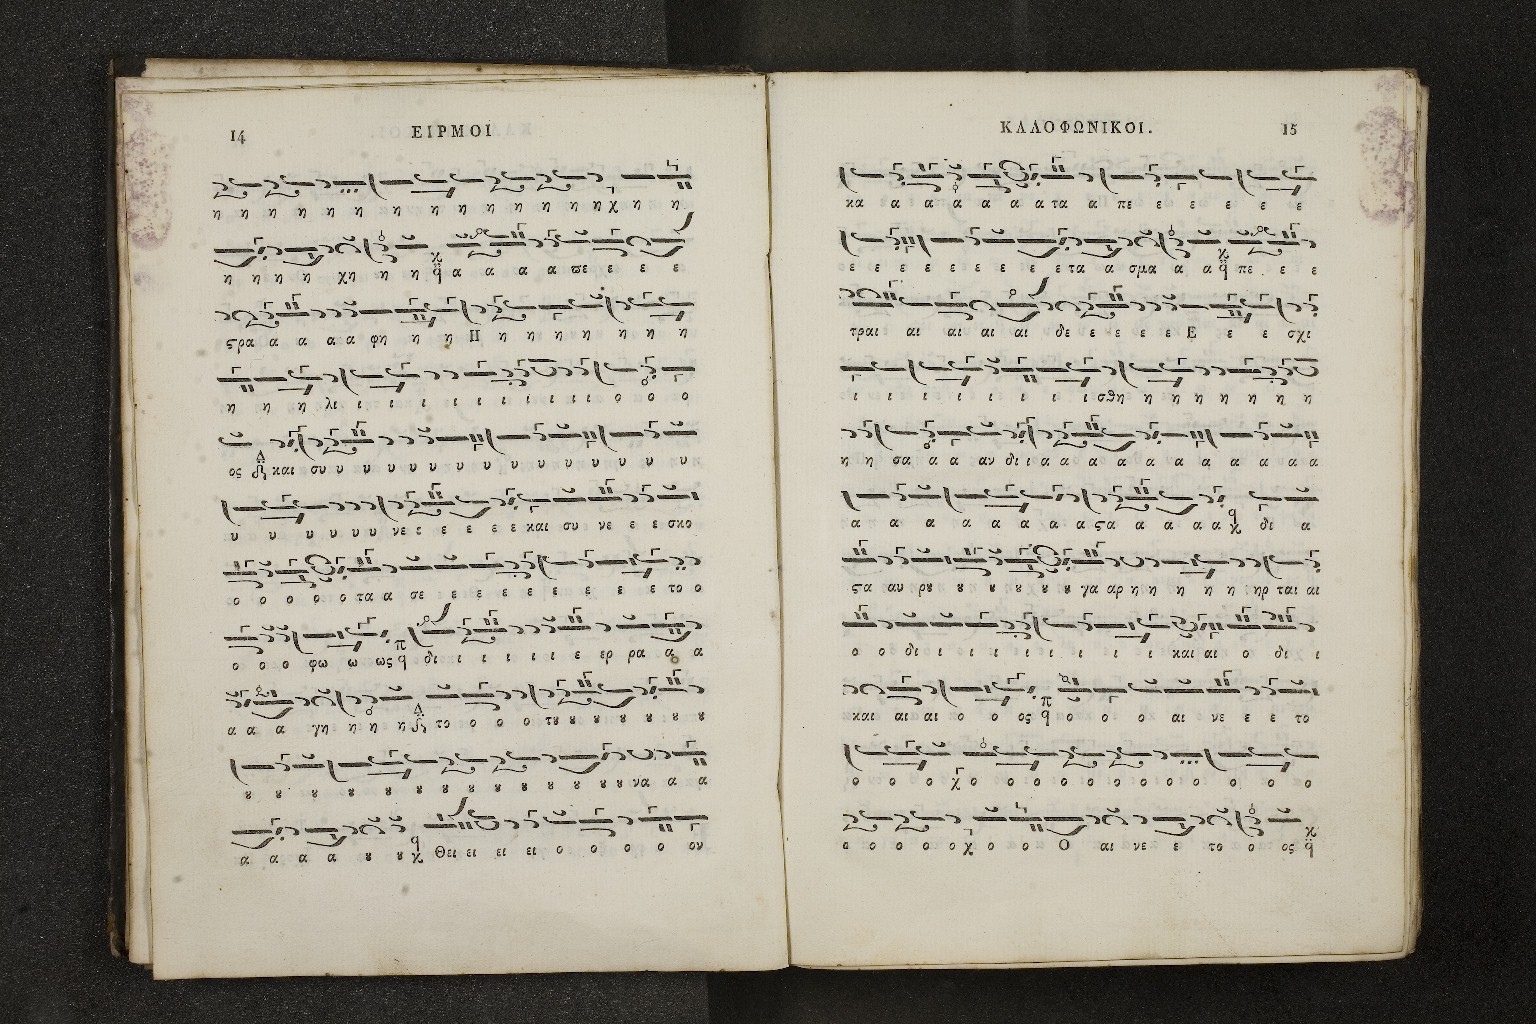 14 ΕΙΡΜΟΙ
η η η η η η η η η η η η η η χ η η
η η η η χη η η α α α α ϖε ε ε ε
ϛρα α α α α φη η η Π η η η η η η η η
η η η λι ι ι ι ι ι ι ι ι ι ο ο ο
ος και συ υ υ υ υ υ υ υ υ υ υ υ υ
υ υ υ υ υ υ νε ε ε ε ε ε και συ νε ε ε σκο
ο ο ο ο ο τα α σε ε ε ε ε ε ε ε ε το ο
ο ο ο φω ω ως δι ι ι ι ι ι ε ερ ρα α α
α α α γη η η η το ο ο ο τȣ ȣ ȣ ȣ ȣ ȣ ȣ
ȣ ȣ ȣ ȣ ȣ ȣ ȣ ȣ ȣ ȣ ȣ ȣ ȣ να α α
α α α α ȣ ȣ Θει ει ει ει ο ο ο ο ο ον
ΚΑΛΟΦΩΝΙΚΟΙ. 15
κα α α α α α α τα α πε ε ε ε ε ε
ε ε ε ε ε ε ε ε ε ετα α σμα α α πε ε ε
τραι αι αι αι αι δε ε ε ε ε ε Ε ε ε σχι
ι ι ι ι ι ι ι ι ι σθη η η η η η η η
η η σα α α αν δι ι α α α α α α α α α α α
α α α α α α α α α ϛα α α α α δι α
ϛα αυ ρȣ ȣ ȣ ȣ ȣ ȣ ȣ γα αρ η η η η η ηρ ται αι
ο ο δι ι ι ι ι ι ι ι ι ι και αι ο δι ι
και αι αι ο ο ος ο ο ο ο αι νε ε ε το
ο ο ο χ ο ο ο ο ο ο ο ο ο ο ο ο
ο ο ο ο ο χ ο ο ο Ο αι νε ε το ο ος